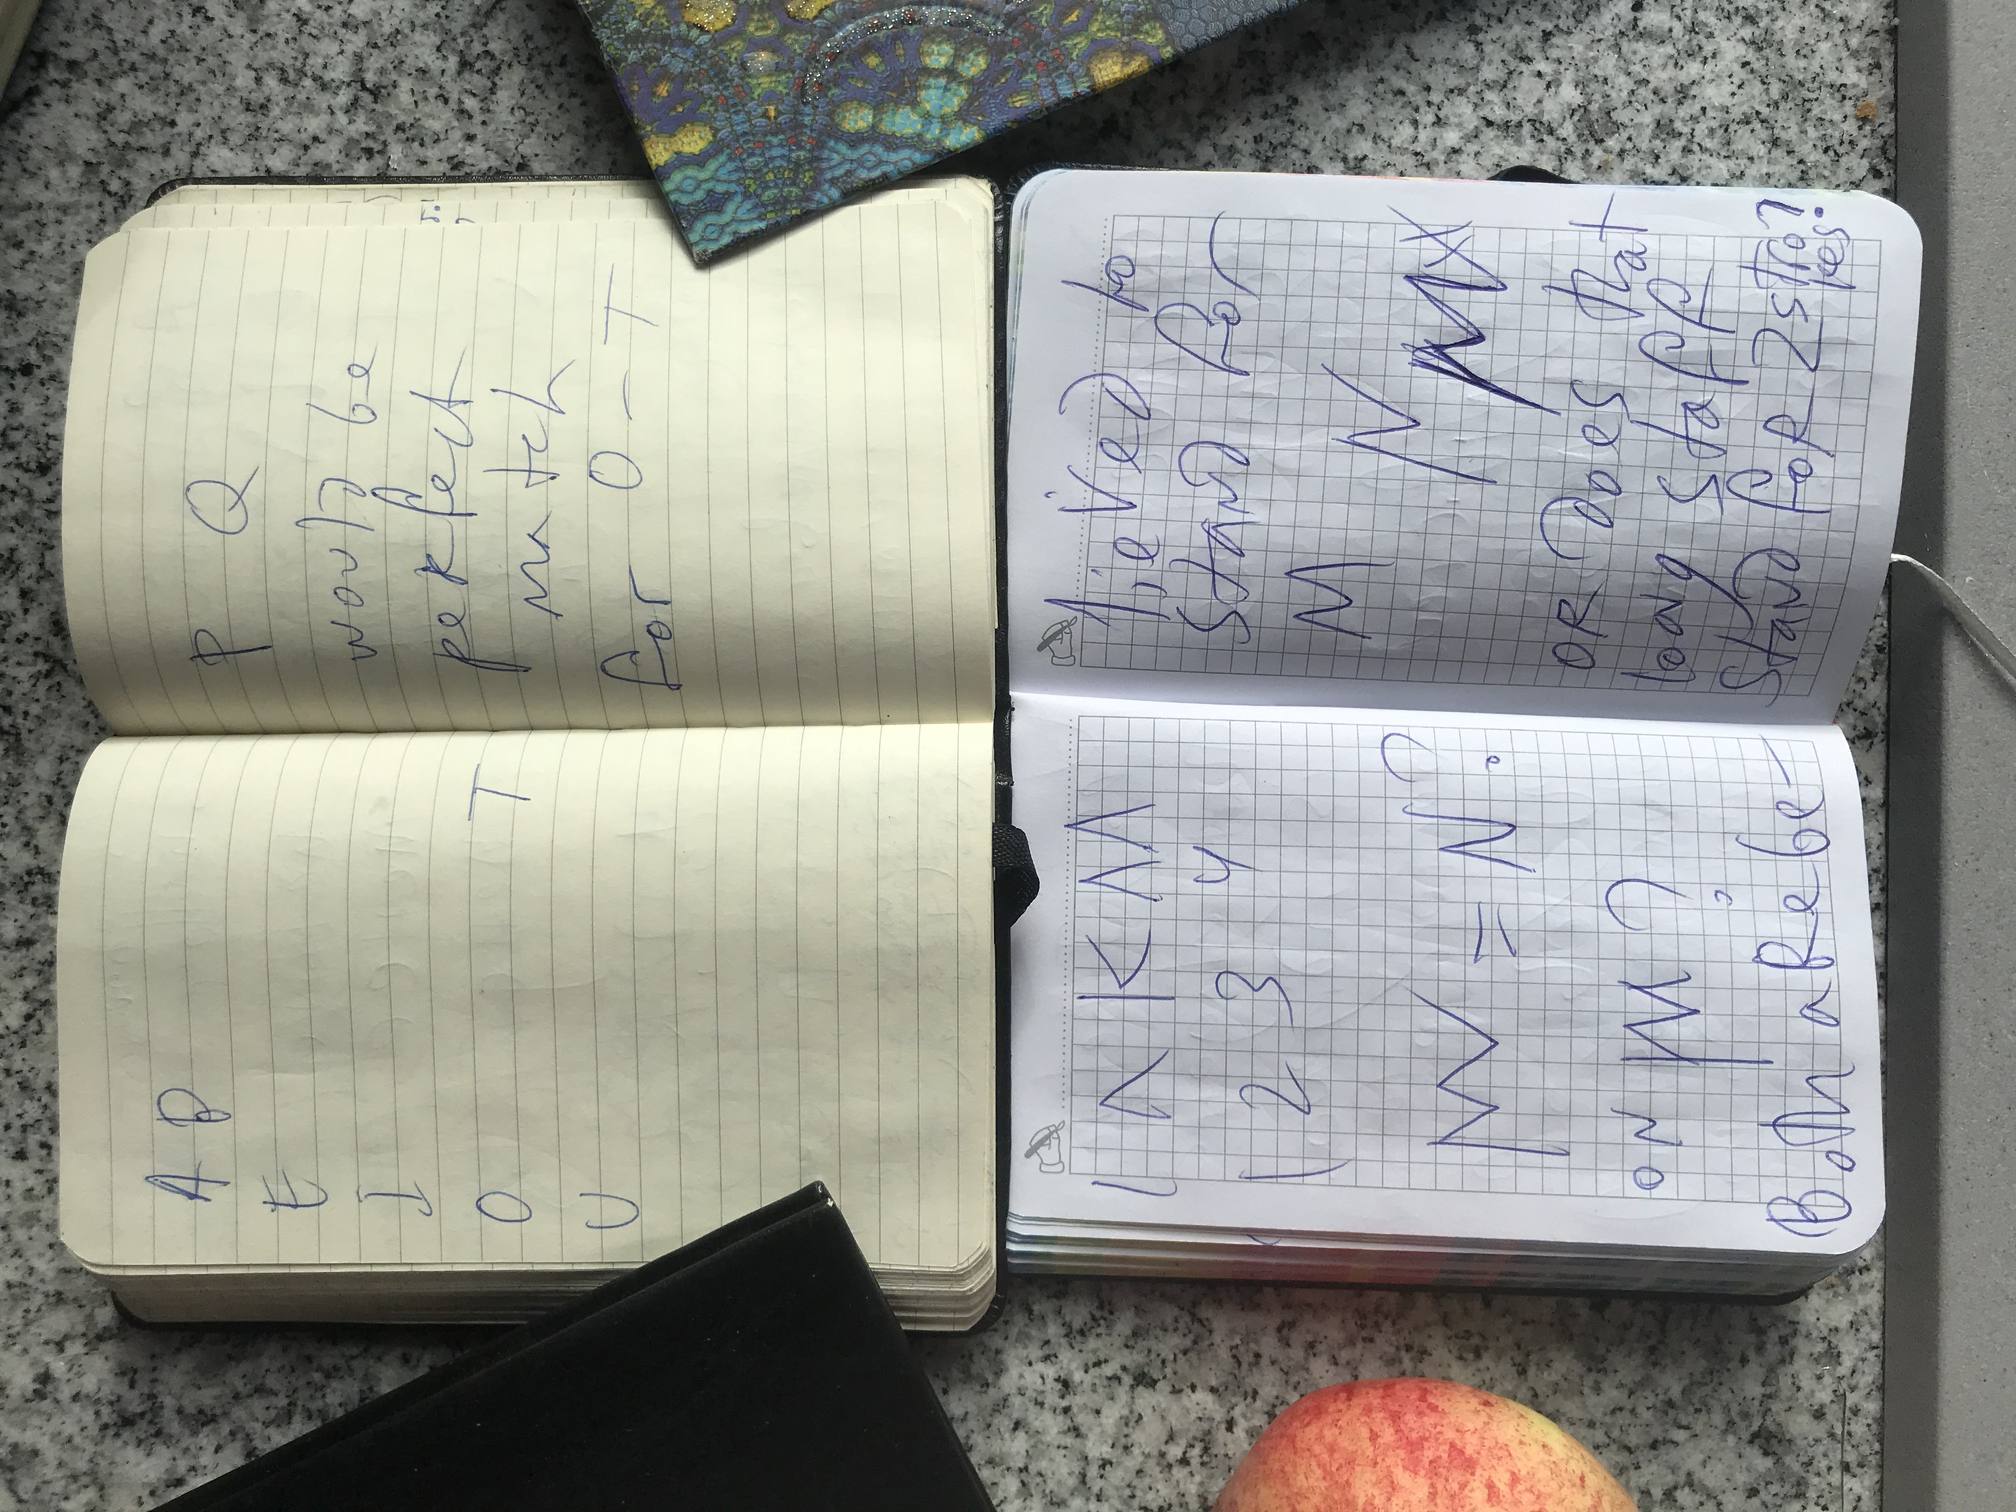 A P
E
I
O T
U
P Q
would be
perfect
match
for O - T
1 2 3 4
N = N?
ON M?
Both are be-
lieved to
stand for
M N
OR does that
long staff
stand for 2 stre?
kes?